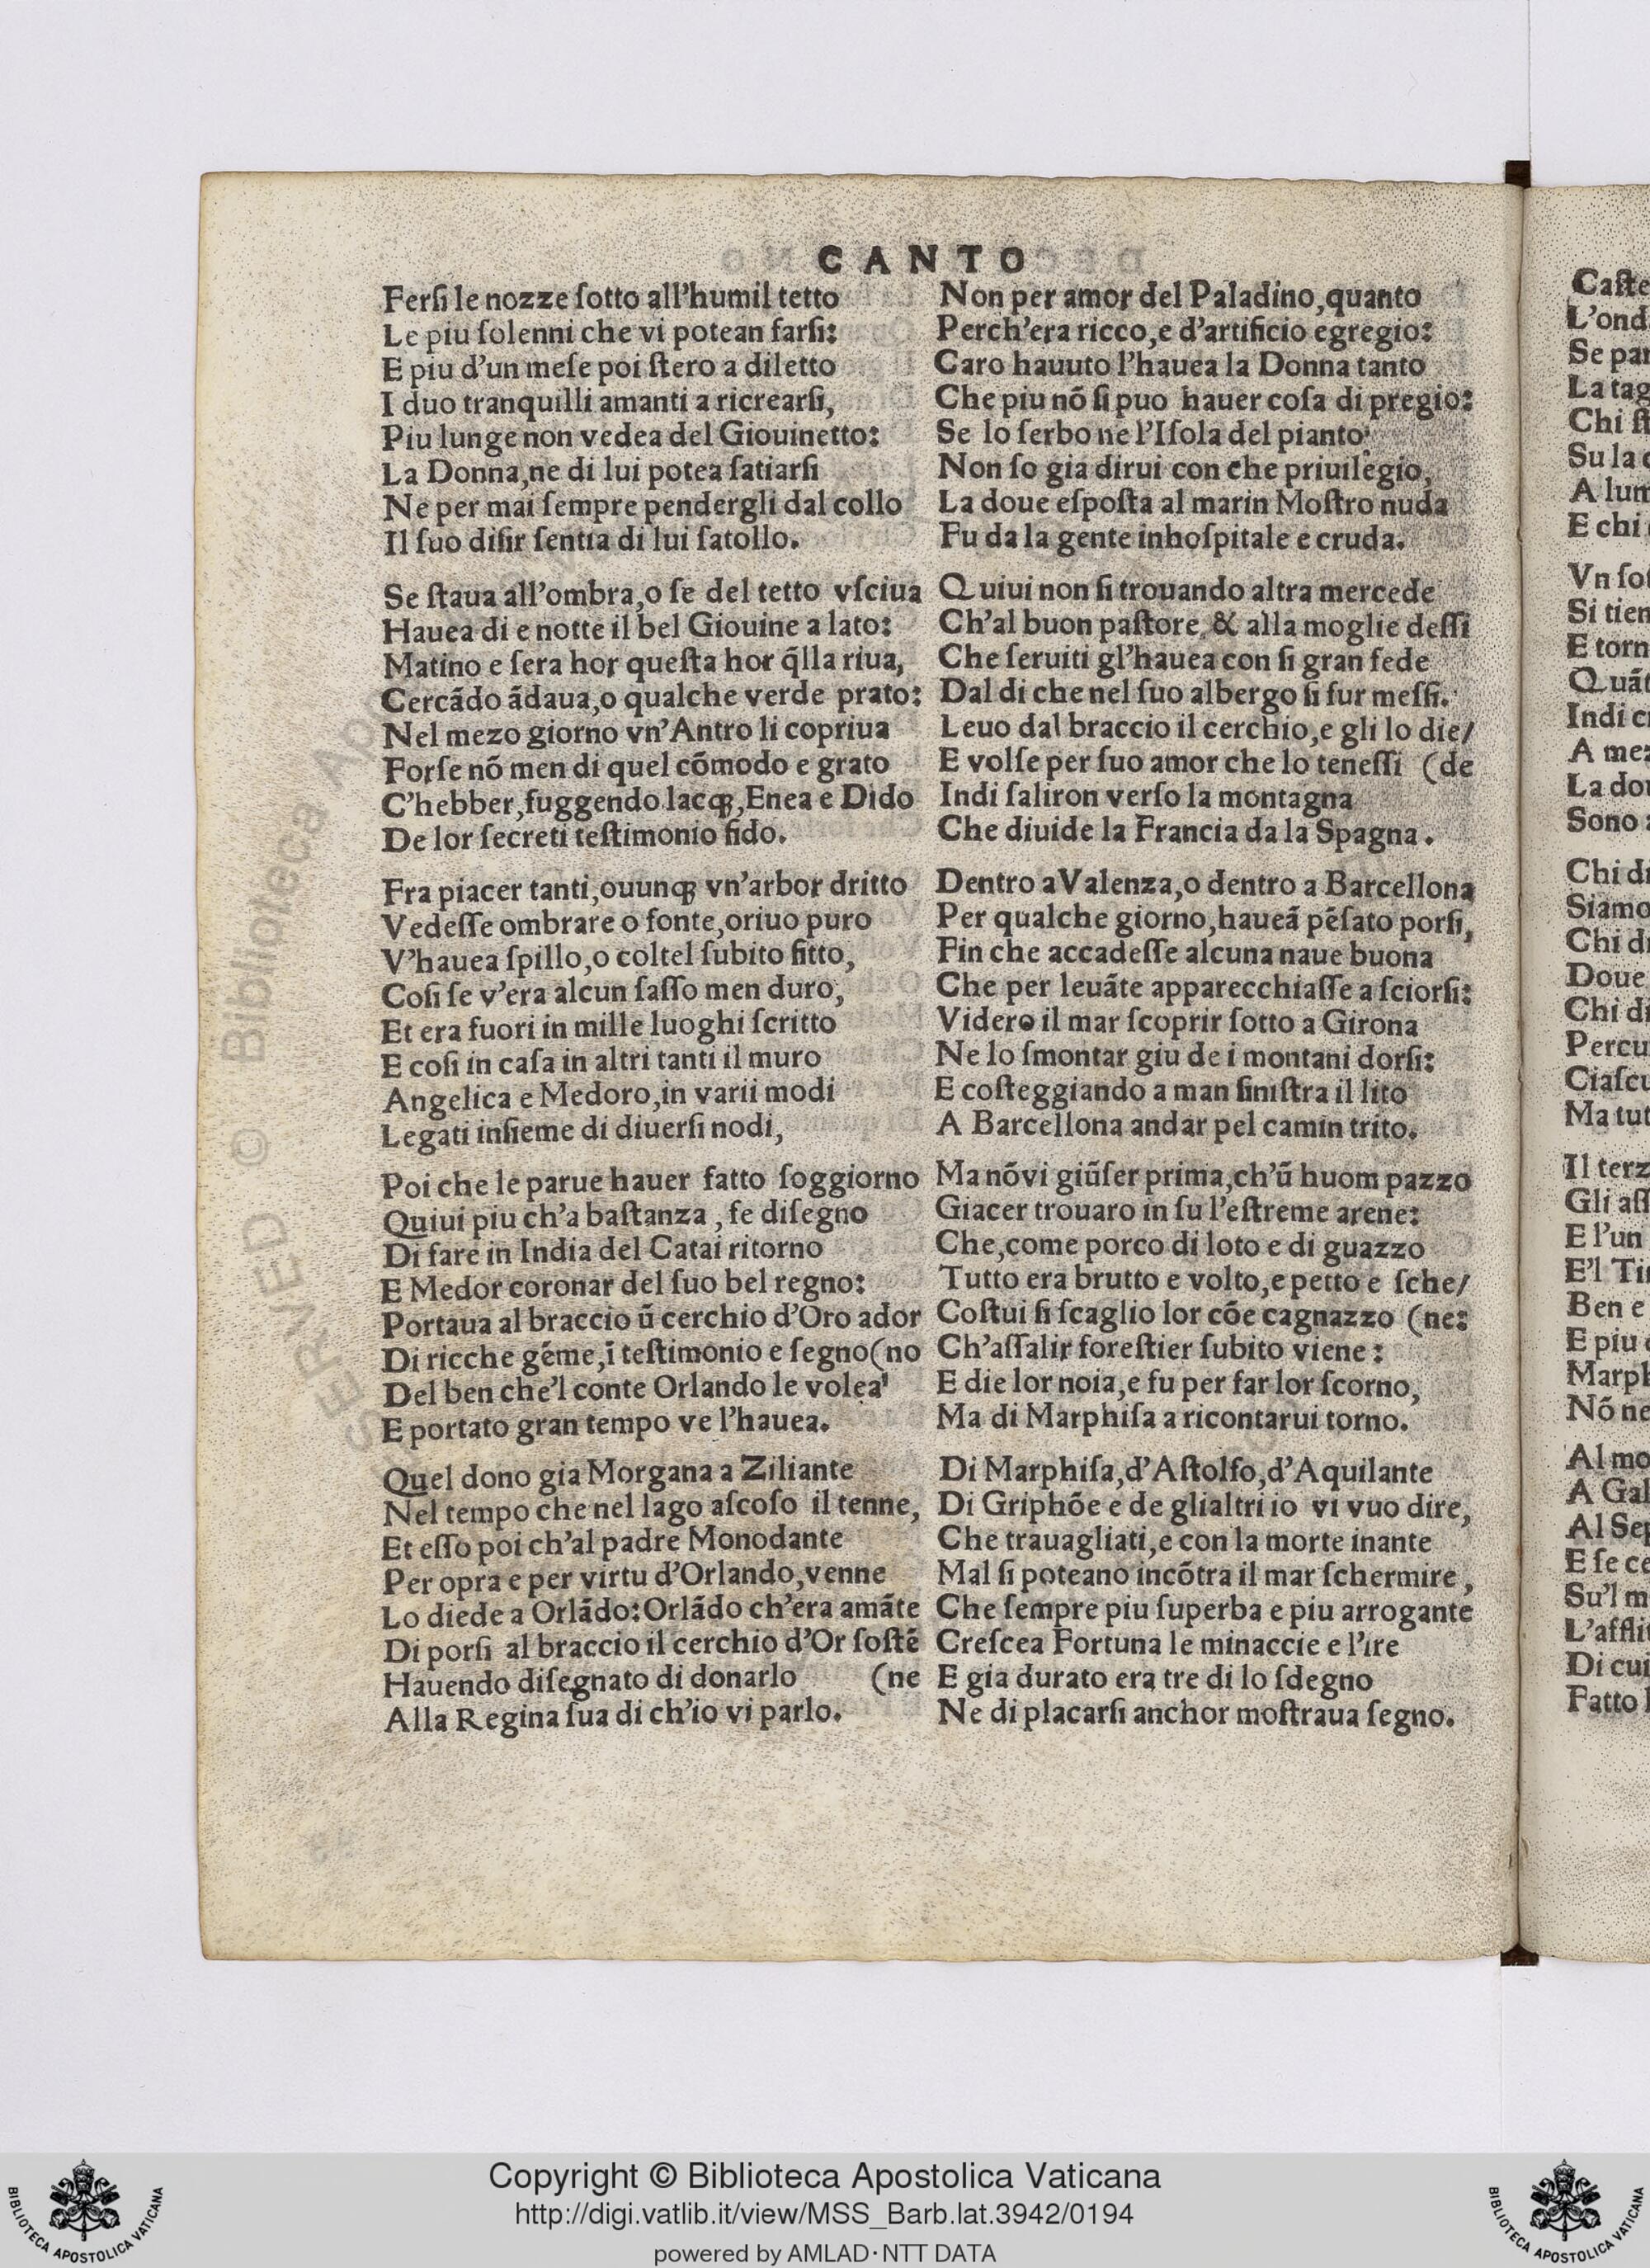 CANTO
Ferſi le nozze ſotto all'humil tetto
Le piu ſolenni che vi potean farſi:
E piu d'un meſe poi ſtero a diletto
I duo tranquilli amanti a ricrearſi,
Piu lunge non vedea del Giouinetto:
La Donna,ne di lui potea ſatiarſi
Ne per mai ſempre pendergli dal collo
Il ſuo diſir ſentia di lui ſatollo.
Se ſtaua all'ombra,o ſe del tetto vſciua
Hauea di e notte il bel Giouine a lato:
Matino e ſera hor queſta hor q̃lla riua,
Cercãdo ãdaua,o qualche verde prato:
Nel mezo giorno vn'Antro li copriua
Forſe nõ men di quel cõmodo e grato
C'hebber,fuggendo lacqꝫ,Enea e Dido
De lor ſecreti teſtimonio fido.
Fra piacer tanti,ouunqꝫ vn'arbor dritto
Vedeſſe ombrare o fonte,oriuo puro
V'hauea ſpillo,o coltel ſubito fitto,
Coſi ſe v'era alcun ſaſſo men duro,
Et era fuori in mille luoghi ſcritto
E coſi in caſa in altri tanti il muro
Angelica e Medoro,in varii modi
Legati inſieme di diuerſi nodi,
Poi che le parue hauer fatto ſoggiorno
Quiui piu ch'a baſtanza , fe diſegno
Di fare in India del Catai ritorno
E Medor coronar del ſuo bel regno:
Portaua al braccio ũ cerchio d'Oro ador
Di ricche gẽme,ĩ teſtimonio e ſegno(no
Del ben che'l conte Orlando le volea'
E portato gran tempo ve l'hauea.
Quel dono gia Morgana a Ziliante
Nel tempo che nel lago aſcoſo il tenne,
Et eſſo poi ch'al padre Monodante
Per opra e per virtu d'Orlando,venne
Lo diede a Orlãdo:Orlãdo ch'era amãte
Di porſi al braccio il cerchio d'Or ſoſtẽ
Hauendo diſegnato di donarlo (ne
Alla Regina ſua di ch'io vi parlo.
Non per amor del Paladino,quanto
Perch'era ricco,e d'artificio egregio:
Caro hauuto l'hauea la Donna tanto
Che piu nõ ſi puo hauer coſa di pregio:
Se lo ſerbo ne l'Iſola del pianto
Non ſo gia dirui con che priuilegio,
La doue eſpoſta al marin Moſtro nuda
Fu da la gente inhoſpitale e cruda.
Quiui non ſi trouando altra mercede
Ch'al buon paſtore, & alla moglie deſſi
Che ſeruiti gl'hauea con ſi gran fede
Dal di che nel ſuo albergo ſi fur meſſi.
Leuo dal braccio il cerchio,e gli lo die/
E volſe per ſuo amor che lo teneſſi (de
Indi ſaliron verſo la montagna
Che diuide la Francia da la Spagna.
Dentro a Valenza,o dentro a Barcellona
Per qualche giorno,haueã pẽſato porſi,
Fin che accadeſſe alcuna naue buona
Che per leuãte apparecchiaſſe a ſciorſi:
Videro il mar ſcoprir ſotto a Girona
Ne lo ſmontar giu de i montani dorſi:
E coſteggiando a man ſiniſtra il lito
A Barcellona andar pel camin trito.
Ma nõvi giũſer prima,ch'ũ huom pazzo
Giacer trouaro in ſu l'eſtreme arene:
Che,come porco di loto e di guazzo
Tutto era brutto e volto,e petto e ſche/
Coſtui ſi ſcaglio lor cõe cagnazzo (ne:
Ch'aſſalir foreſtier ſubito viene:
E die lor noia,e fu per far lor ſcorno,
Ma di Marphiſa a ricontarui torno.
Di Marphiſa,d'Aſtolfo,d'Aquilante
Di Griphõe e de glialtri io vi vuo dire,
Che trauagliati,e con la morte inante
Mal ſi poteano incõtra il mar ſchermire,
Che ſempre piu ſuperba e piu arrogante
Creſcea Fortuna le minaccie e l'ire
E gia durato era tre di lo ſdegno
Ne di placarſi anchor moſtraua ſegno.
Caſte
L'ond
Se par
La tag
Chi ſt
Su la
A lum
E chi
Vn ſo
Si tien
E torn
Quãt
Indi c
A me
La do
Sono
Chi di
Siamo
Chi di
Doue
Chi di
Percu
Ciaſcu
Ma tut
Il terz
Gli aſſ
E l'un
E'l Ti
Ben e
E piu
Marph
Nõ ne
Al mo
A Gal
Al Sep
E ſe ce
Su'l m
L'afflit
Di cui
Fatto
© Biblioteca Apo
SERVED
Copyright © Biblioteca Apostolica Vaticana
http://digi.vatlib.it/view/MSS_Barb.lat.3942/0194
powered by AMLAD·NTT DATA
BIBLIOTECA APOSTOLICA VATICANA
BIBLIOTECA APOSTOLICA VATICANA